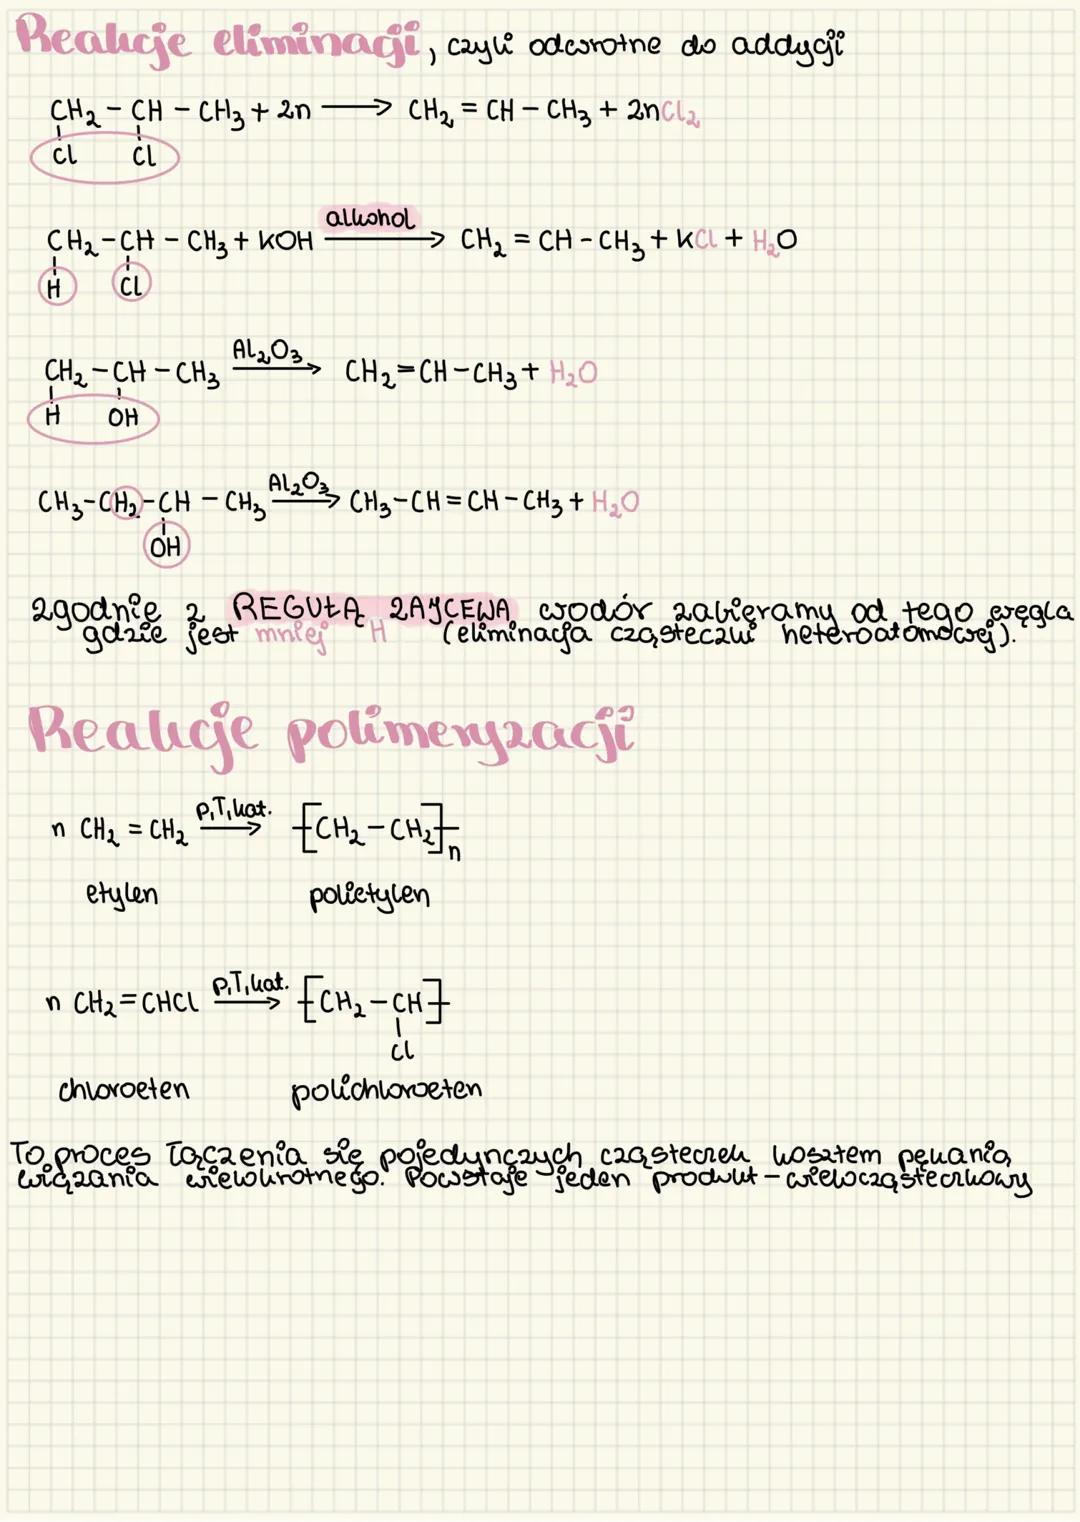 Reakcje eliminacji, czyli odwrotne do addycji
CH₂ - CH - CH₃ + Zn ⟶ CH₂ = CH - CH₃ + ZnCl₂
Cl Cl
alkohol
CH₂ - CH - CH₃ + KOH ⟶ CH₂ = CH - CH₃ + KCl + H₂O
H Cl
Al₂O₃
CH₂ - CH - CH₃ ⟶ CH₂ = CH - CH₃ + H₂O
H OH
Al₂O₃
CH₃ - CH₂ - CH - CH₃ ⟶ CH₃ - CH = CH - CH₃ + H₂O
OH
zgodnie z REGUŁĄ ZAJCEWA wodór zabieramy od tego węgla
gdzie jest mniej H (eliminacja cząsteczki heteroatomowej).
Reakcje polimeryzacji
p,T,kat.
n CH₂ = CH₂ ⟶ [CH₂ - CH₂]n
etylen polietylen
p,T,kat.
n CH₂ = CHCl ⟶ [CH₂ - CH]
Cl
chloroeten polichloroeten
To proces łączenia się pojedynczych cząsteczek kosztem pękania
wiązania wielokrotnego. Powstaje jeden produkt - wielocząsteczkowy